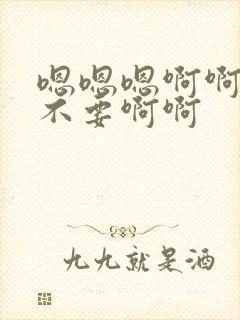 嗯嗯嗯啊啊
不要啊啊
九九就是酒